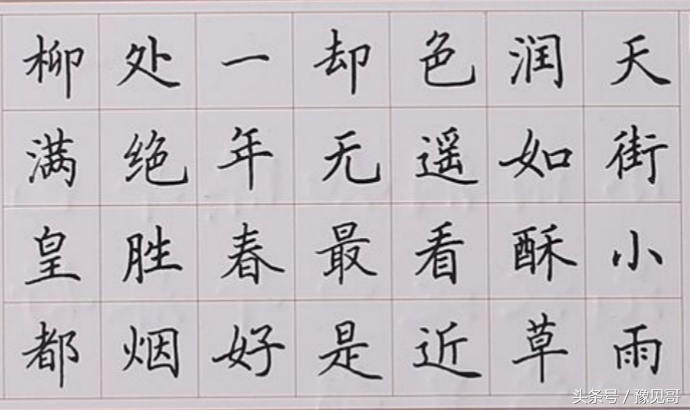 天街小雨
润如酥草
色遥看近
却无最是
一年春好
处绝胜烟
柳满皇都
头条号 / 豫见哥